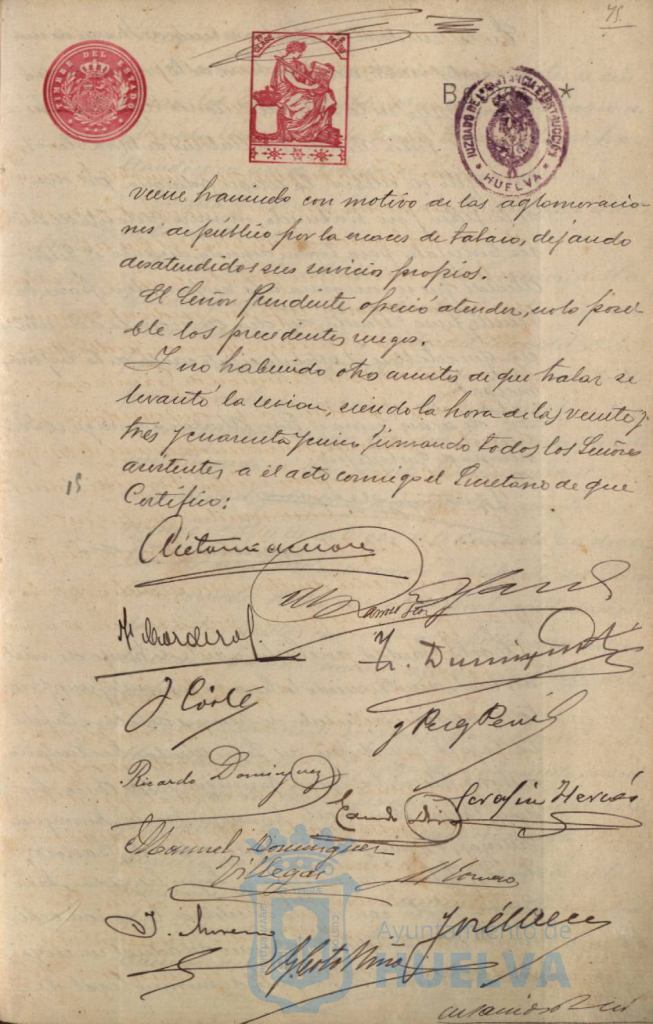 75.
TIMBRE DEL ESTADO
B
JUZGADO DE 1ª INSTANCIA E INSTRUCCION
* HUELVA *
viene haciendo con motivo de las aglomeracio-
nes de público por la escases de tabaco, dejando
desatendidos sus servicios propios.
El Señor Presidente ofreció atender, en lo posi-
ble los precedentes ruegos.
Y no habiendo otro asuntos de que tratar se
levantó la sesion, siendo la hora de las veinte y
tres y cuarenta y cinco firmando todos los Señores
asistentes a el acto conmigo el Secretario de que
Certifico:
15
J Córte
Ricardo Dominguez
Serafin
Manuel Dominguez
Villegas
M Romero
J. Moreno
Ayuntamiento de
HUELVA